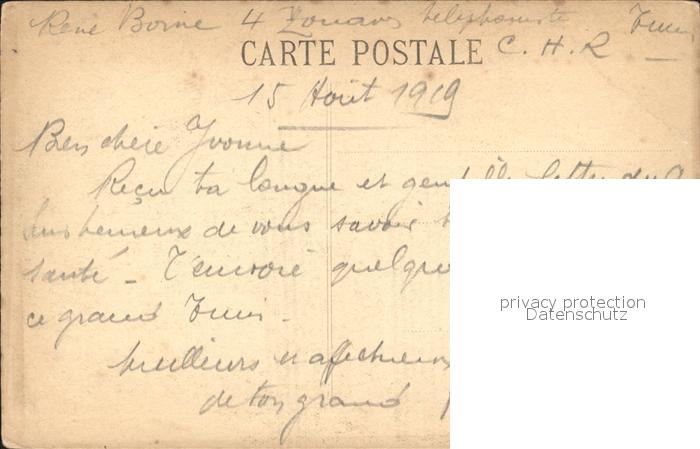 René Boine 4 Zouaves telephoniste Tunis
CARTE POSTALE C. H. R
15 Août 1919
Bien chère Yvonne
Reçu ta longue et gentille lettre du
suis heureux de vous savoir
santé _ T'envoie quelque
ce grand Tunis _
meilleurs et affectueux
de ton grand
privacy protection
Datenschutz